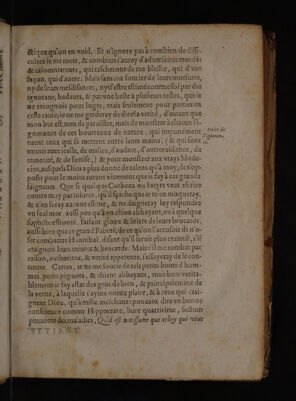 ctique qu'on en void. Ie n'ignore pas à combien de diffi-
cultez ie me mets, & combien i'auray d'aduersaires mordās
& calomniateurs, qui tascheront de me blesser, qui d'vne
façon, qui d'autre: Mais sans me soucier de leurs morsures,
ny de leurs mesdisances, n'est-ce comme fol par des
ignorans, badauts, & par vne beste à plusieurs testes, que ie
ne recognois pour Iuges, mais seulement pour parties en
ceste cause, ie ne me garderay de dire la verité, d'autant que
mon but est non de paroistre, mais de monstrer à chacun l'i-
gnorance de ces bourreaux de nature, qui impunément
tuent ceux qui se mettent entre leurs mains, ( & qui sont
d'ame cruelle, de malice, d'audace, d'outrecuidance, de
temerité, & de sottise,) & pour monstrer aux vrays Mede-
cins, ausquels Dieu a plus donné de talens qu'à moy, de s'op-
poser pour le moins autant virilement que ie fay à ces grands
saigneurs. Que si quelque Corbeau ou Satyre veut escrire
contre mon party, qu'il sçache que ie m'en mocqueray,
& n'en feray aucune estime, & ne daigneray luy respondre
vn seul mot, aussi peu qu'à vn chien abbayant, où à quelque
sophiste effronté, faisant gloire & litiere de leurs brocards,
aussi bien que ce grand Fabius, de ce qu'on l'accusoit de n'o-
ser combattre Hannibal, disant qu'il seroit plus craintif, s'il
craignoit leurs iniures & brocards: Mais s'il me combat par
raison, authoritez, & verité apparente, i'essayeray de le con-
tenter. Certes, ie ne me soucie de tels petits bouts d'hom-
mes, petits piquets, & chiens abbayans, mais bien verita-
blement ie fay estat des gens de bien, & principalement de
la verité, à laquelle i'ayme mieux plaire, & à ceux qui crai-
gnent Dieu, qu'à mille meschans: pouuant dire en bonne
conscience comme Hippocrate, liure quatriesme, section
premiere des maladies, Qu'il est necessaire que celuy qui veut